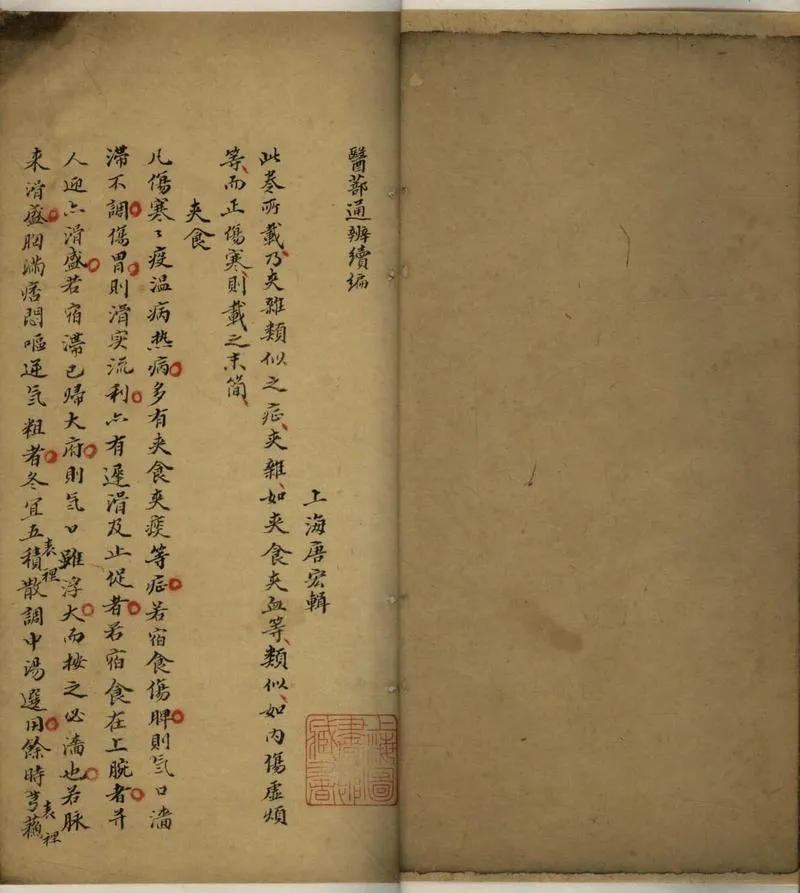 醫蔀通辨續編
上海唐宏輯
此卷所載乃夾雜類似之症夾雜如夾食夾血等類似如内傷虛煩
等而正傷寒則載之末簡
夾食
凡傷寒〻疫温病热病多有夾食夾痰等症若宿食傷脾則气口濇
滯不調傷胃則滑实流利亦有遲滑及止促者若宿食在上脘者并
人迎亦滑盛若宿滯已歸大府則气口雖浮大而按之必濇也若脉
来滑盛胸滿痞悶嘔逆气粗者冬宜五積散調中湯選用餘時芎蘓
表裡
表裡
上海圖書館藏書